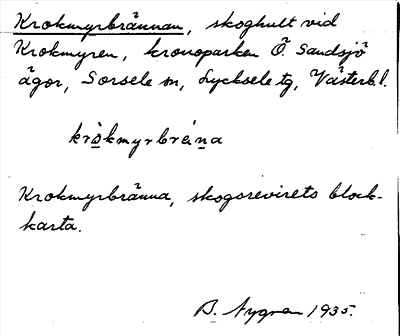 Krokmyrbrännan, skoghult vid
Krokmyren, kronoparken Ö. Sandsjö
ägor, Sorsele sn, Lycksele tg, Västerb.l.
kro̱kmyrbreṉa
Krokmyrbränna, skogsrevirets block-
karta.
B. Nygren 1935.